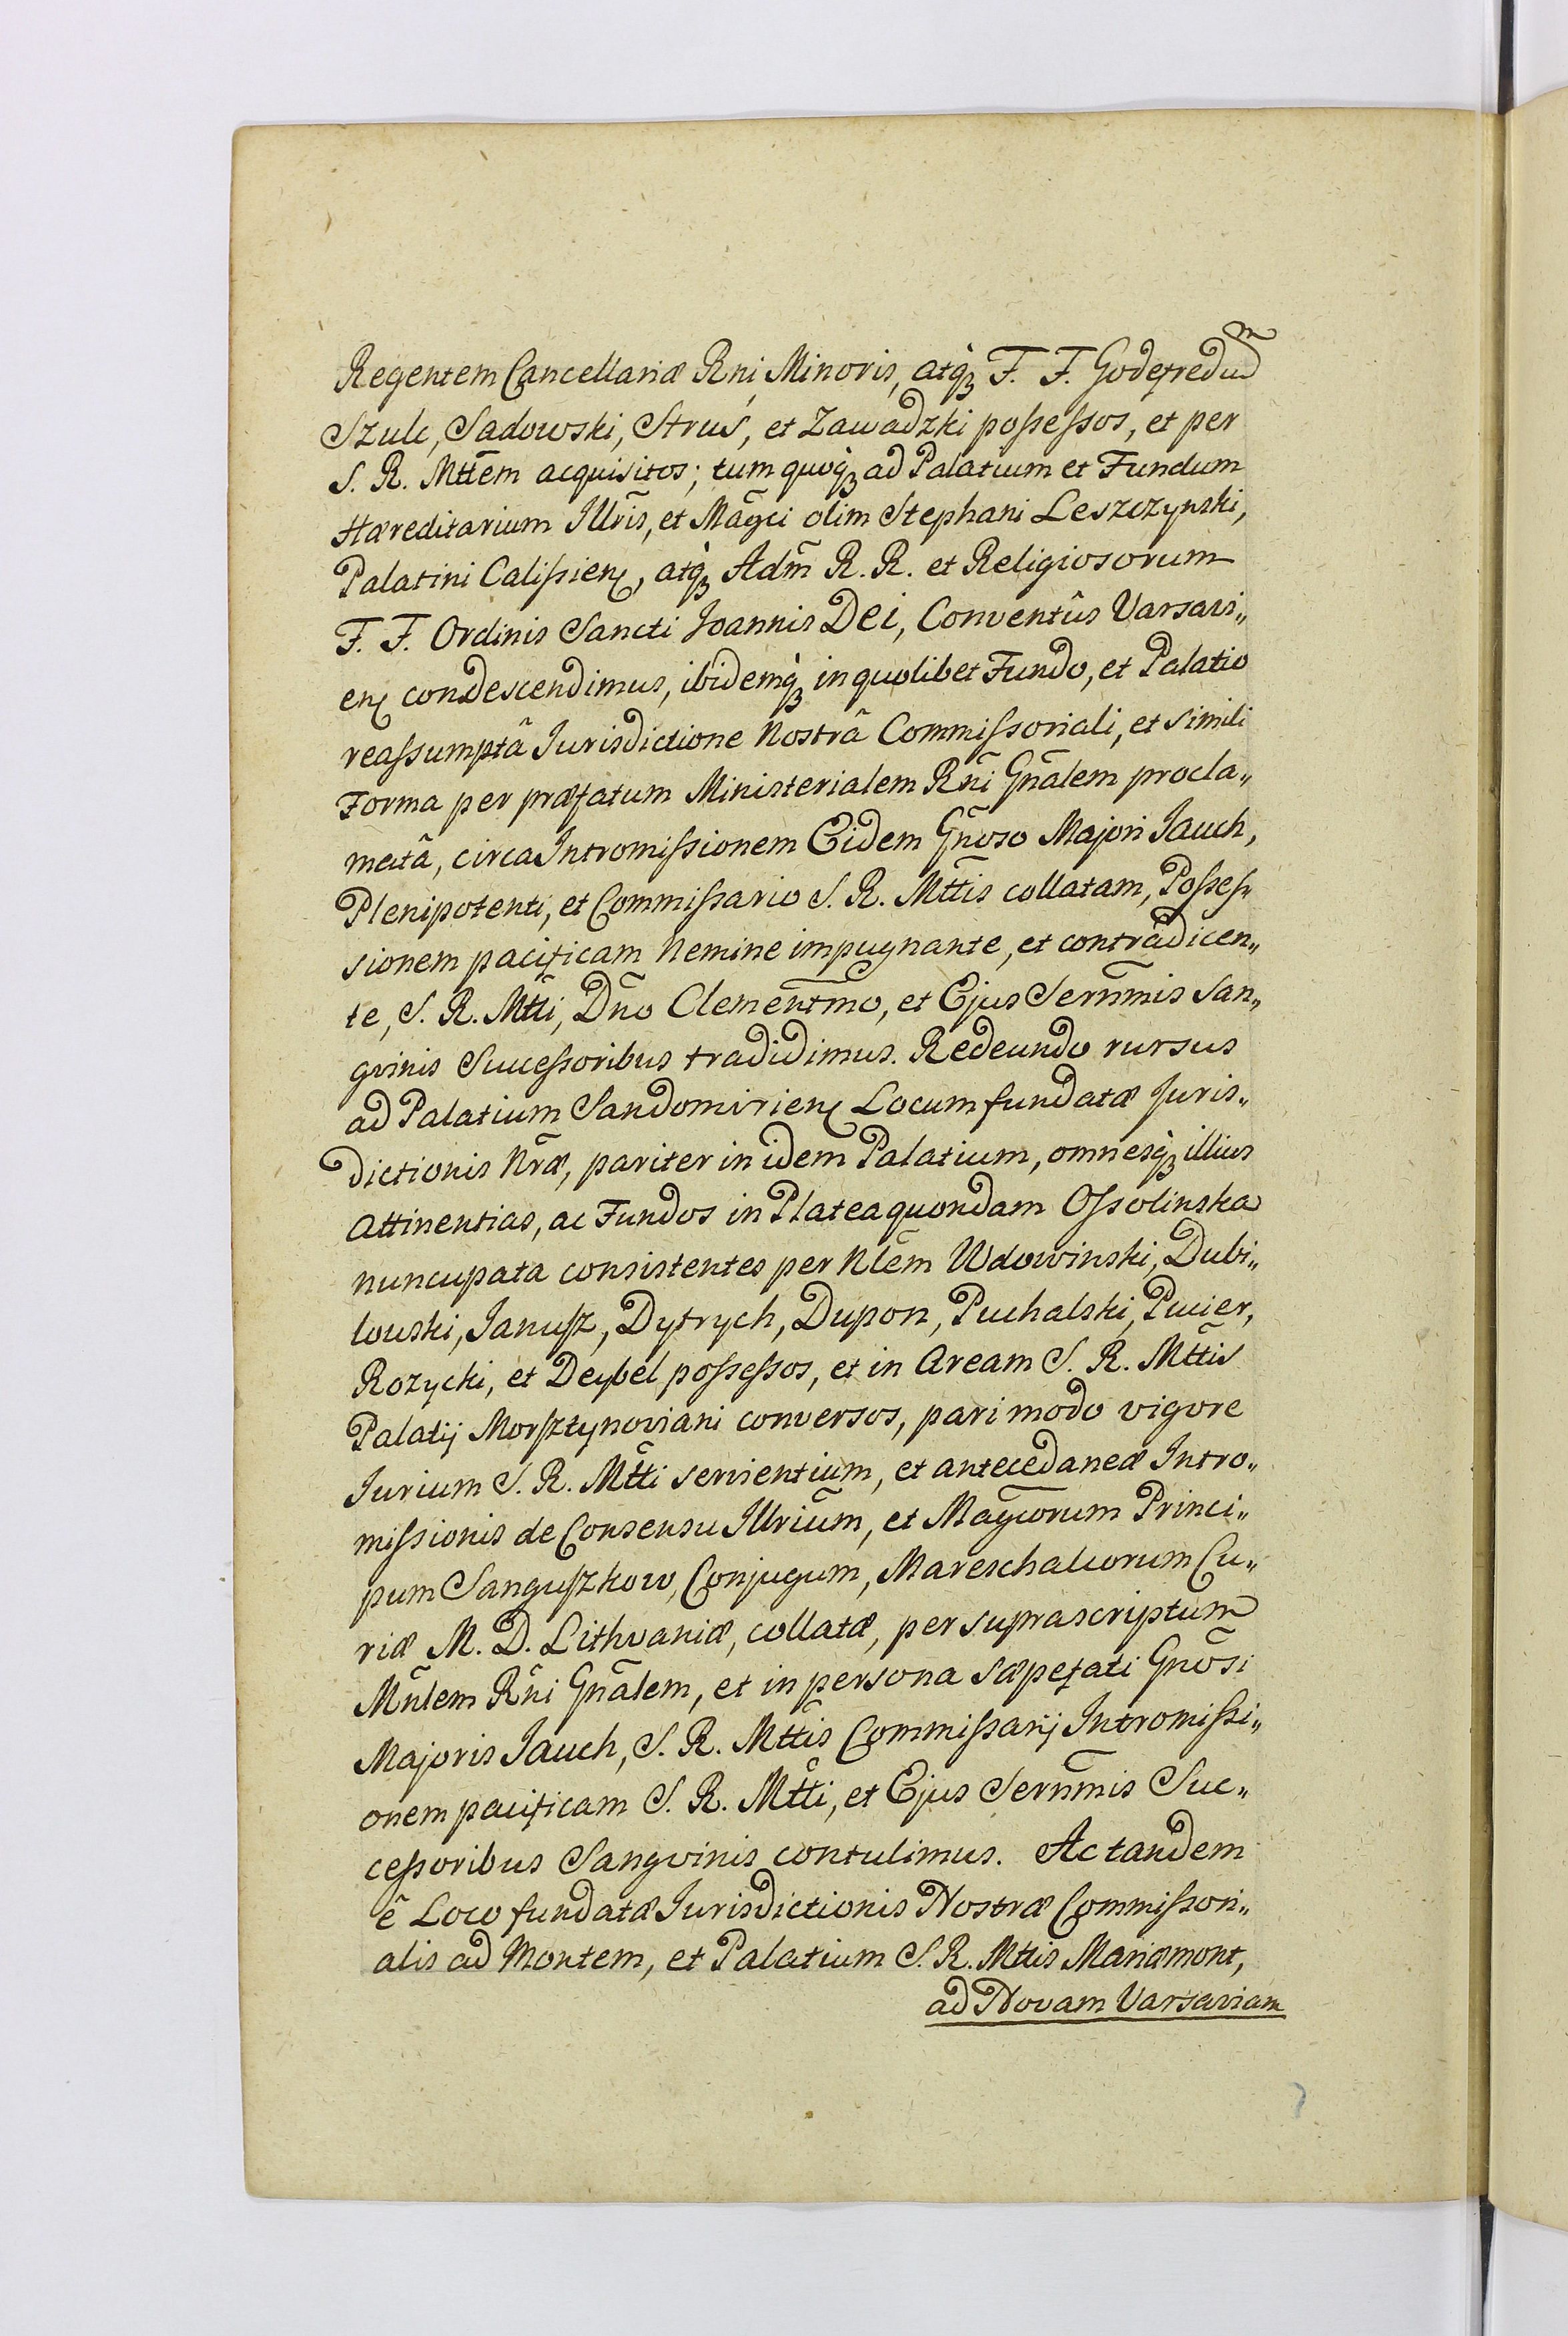 Regentem Cancellariæ Rni Minoris, atq̀ꝫ F. F. Godefredum
Szulc, Sadowski, Strus, et Zawadzki poſseſsos, et per
S. R. Mttem acquisitos; tum quoq̀ꝫ ad Palatium et Fundum
Hæreditarium Illris, et Magci olim Stephani Leszczynski,
Palatini Caliſsien, atq̀ꝫ Adm̃ R. R. et Religiosorum
F. F. Ordinis Sancti Joannis Dei, Conventûs Varsavi„
en condescendimus, ibidemq̀ꝫ in quolibet Fundo, et Palatio
reaſsumptâ Jurisdictione Nostrâ Commiſsoriali, et simili
Forma per præfatum Ministerialem Rñi Gñalem procla„
matâ, circa Intromiſsionem Eidem Gñoso Majori Jauch,
Plenipotenti, et Commiſsario S. R. Mttis collatam, Poſseſ„
sionem pacificam Nemine impugnante, et contradicen„
te, S. R. Mtti, Dño Clementmo, et Ejus Sernmis San„
gvinis Succeſsoribus tradidimus. Redeundo rursus
ad Palatium Sandomirien Locum fundatæ Juris„
dictionis Nræ, pariter in idem Palatium, omnesq̀ꝫ illius
Attinentias, ac Fundos in Platea quondam Oſsolinska
nuncupata consistentes per Nlem Wdowinski, Dubi„
lowski, Januſz, Dytrych, Dupon, Puchalski, Pucier,
Rozycki, et Deybel poſseſsos, et in Aream S. R. Mttis
Palatij Morſztynoviani conversos, pari modo vigore
Jurium S. R. Mtti servientium, et antecedaneæ Intro„
miſsionis de Consensu Illrium, et Magcorum Princi„
pum Sanguſzkow, Conjugum, Mareschalcorum Cu„
riæ M. D. Lithvaniæ, collatæ, per suprascriptum
Mñlem Rñi Gñalem, et in persona sæpefati Gnosi
Majoris Jauch, S. R. Mttis Commiſsarij Intromiſsi„
onem pacificam S. R. Mtti, et Ejus Sernmis Suc„
ceſsoribus Sangvinis contulimus. Ac tandem
ê Loco fundatæ Jurisdictionis Nostræ Commiſsori„
alis ad Montem, et Palatium S. R. Mttis Mariæmont,
ad Novam Varsaviam
7